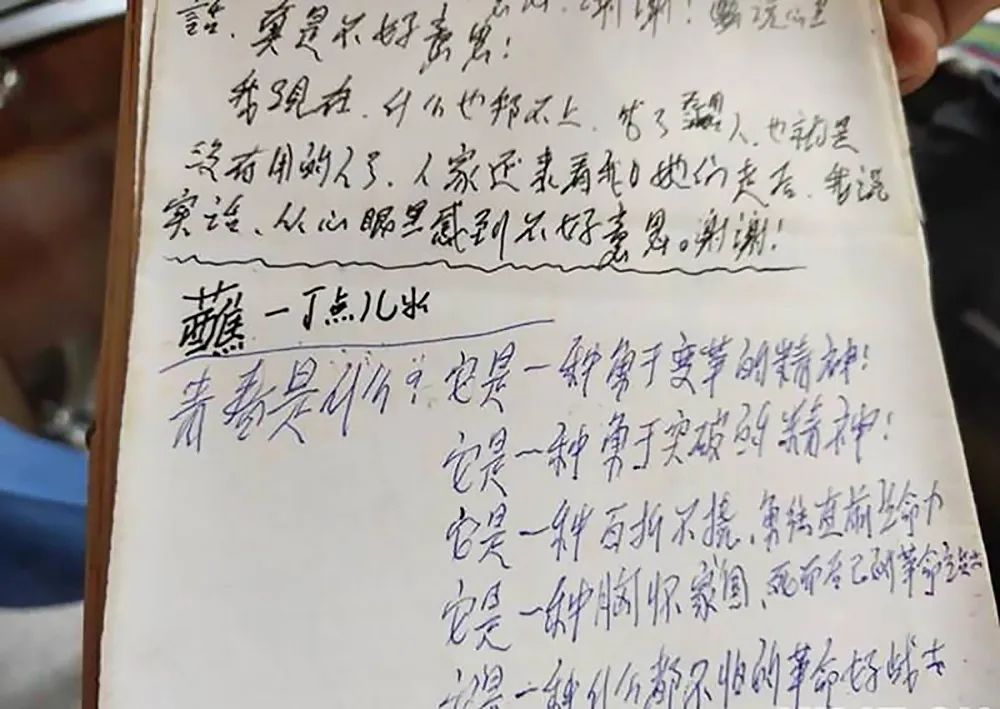 谢谢!
話、真是不好意思!
我现在、什么也帮不上、成了 人、也就是
没有用的人了、人家还来看我、她们走后、我说
实话、从心眼里感到不好意思。谢谢!
蘸一丁点儿水
青春是什么?它是一种勇于变革的精神!
它是一种勇于突破的精神!
它是一种百折不挠、勇往直前生命力
它是一种胸怀家国、死而后已的革命
它是一种什么都不怕的革命好战士